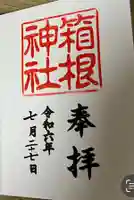 奉拝
箱根
神社
令和六年
七月二十七日